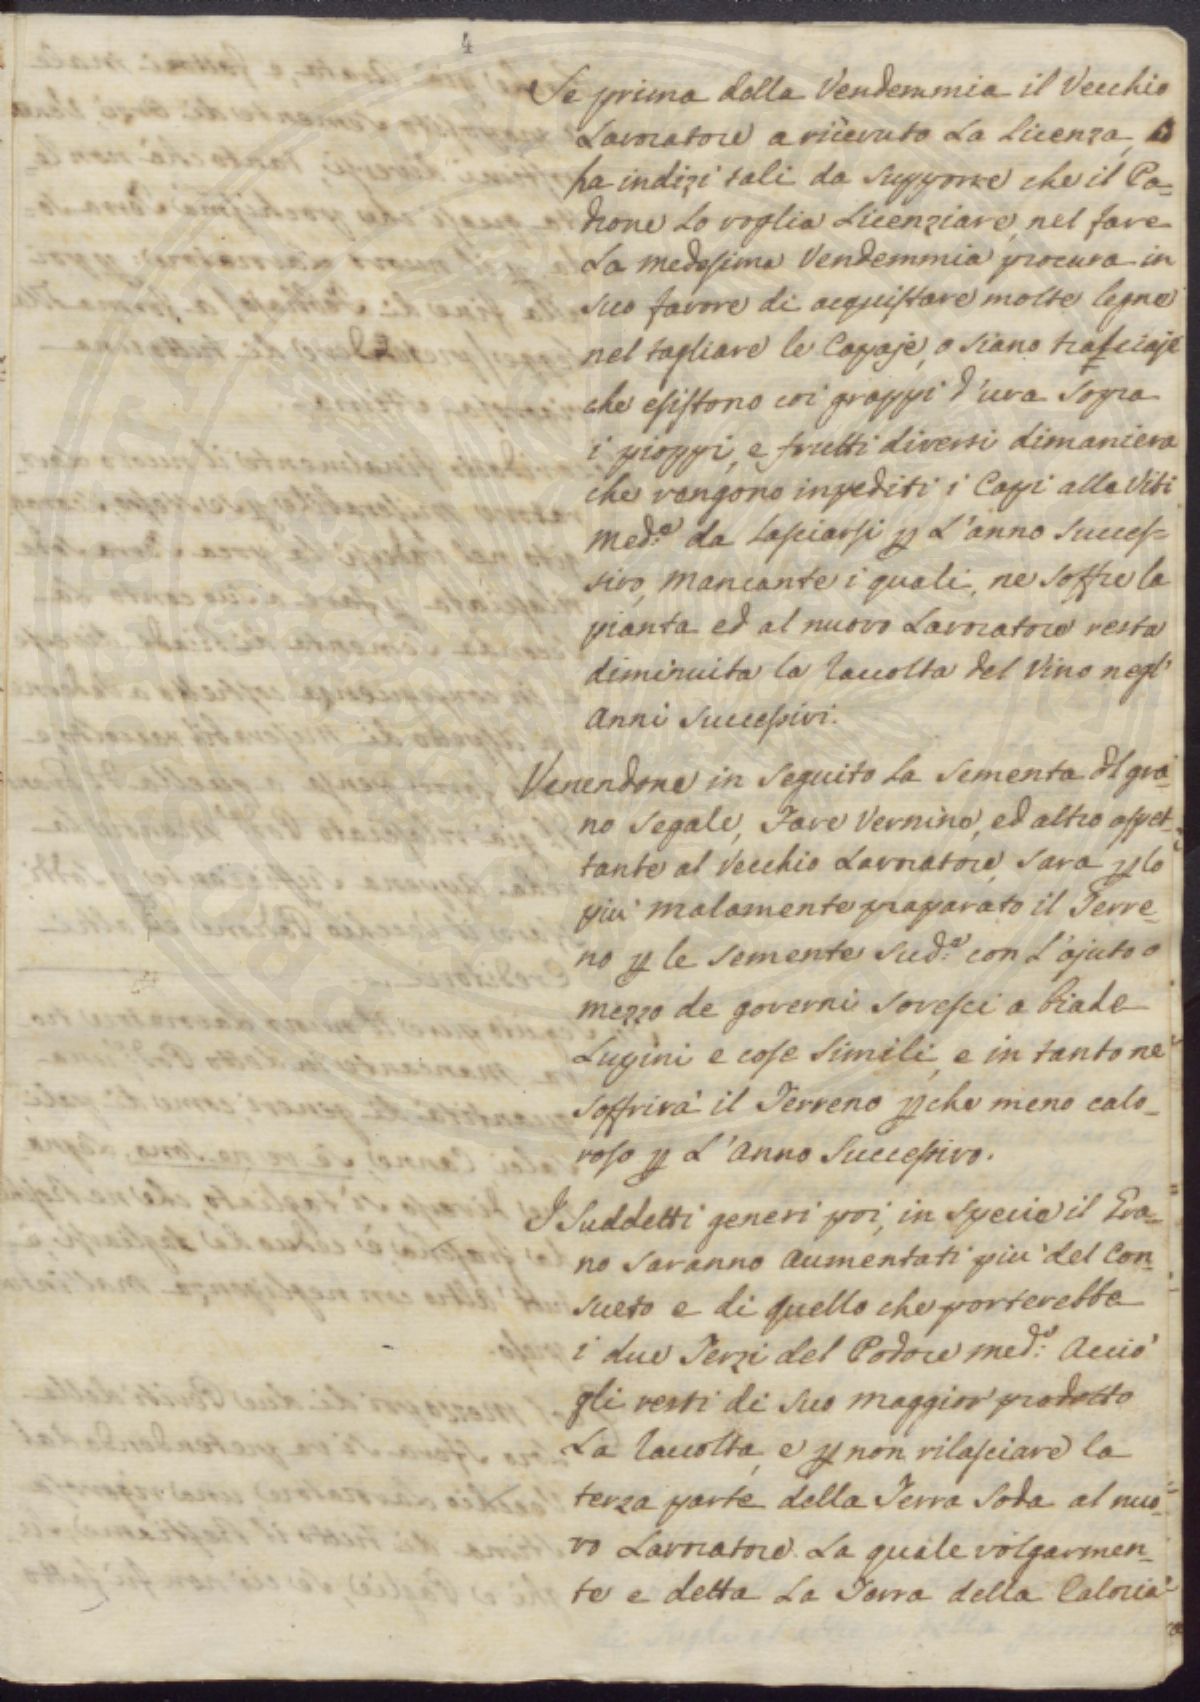 4
Se prima della Vendemmia il Vecchio
Lavoratore a ricevuto La Licenza, o
ha indizi tali da supporre che il Pa=
drone Lo voglia Licenziare, nel fare
La medesima Vendemmia procura in
suo favore di acquistare molte legne
nel tagliare le Capaje, o siano trasciaje
che esistono coi grappi d'uva sopra
i pioppi, e frutti diversi dimaniera
che vengono inpediti i Capi alle Viti
med:e da Lasciarsi p L'anno Succes=
sivo, mancante i quali, ne soffre la
pianta ed al nuovo Lavoratore resta
diminuita la Raccolta del Vino negl'
Anni Successivi.
Venendone in seguito La sementa dl gra=
no Segale, Fave Vernino, ed altro aspet=
tante al Vecchio Lavoratore, sara p lo
piu' malamente praparato il Terre=
no p le semente Sud:e con L'ajuto o
mezzo de governi sovesci a Biade
Lupini e cose Simili, e in tanto ne
Soffrirà il Terreno p che meno calo=
roso p L'Anno Successivo.
I Suddetti generi poi, in specie il Gra=
no saranno Aumentati piu' del Con=
sueto e di quello che porterebbe
i due Terzi del Podere med:o Acciò
gli resti di suo maggior prodotto
La Raccolta, e p non rilasciare la
terza parte della Terra Soda al nuo=
vo Lavoratore. La quale volgarmen=
te e detta La Terra della Caloria